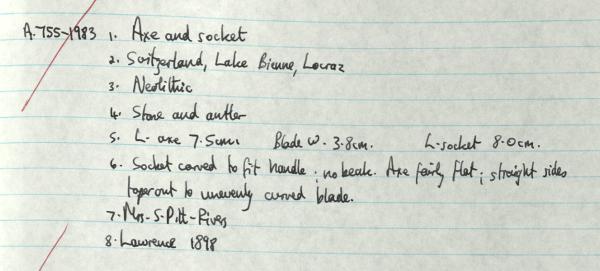 A.755-1983 1. Axe and socket
2. Switzerland, Lake Bienne, Locraz
3. Neolithic
4. Stone and antler
5. L- axe 7.5cm. Blade W. 3.8cm. L-socket 8.0cm.
6. Socket carved to fit handle . no beak. Axe fairly flat ; straight sides
taper out to unevenly curved blade.
7. Mrs. S. Pitt-Rivers
8. Lawrence 1898